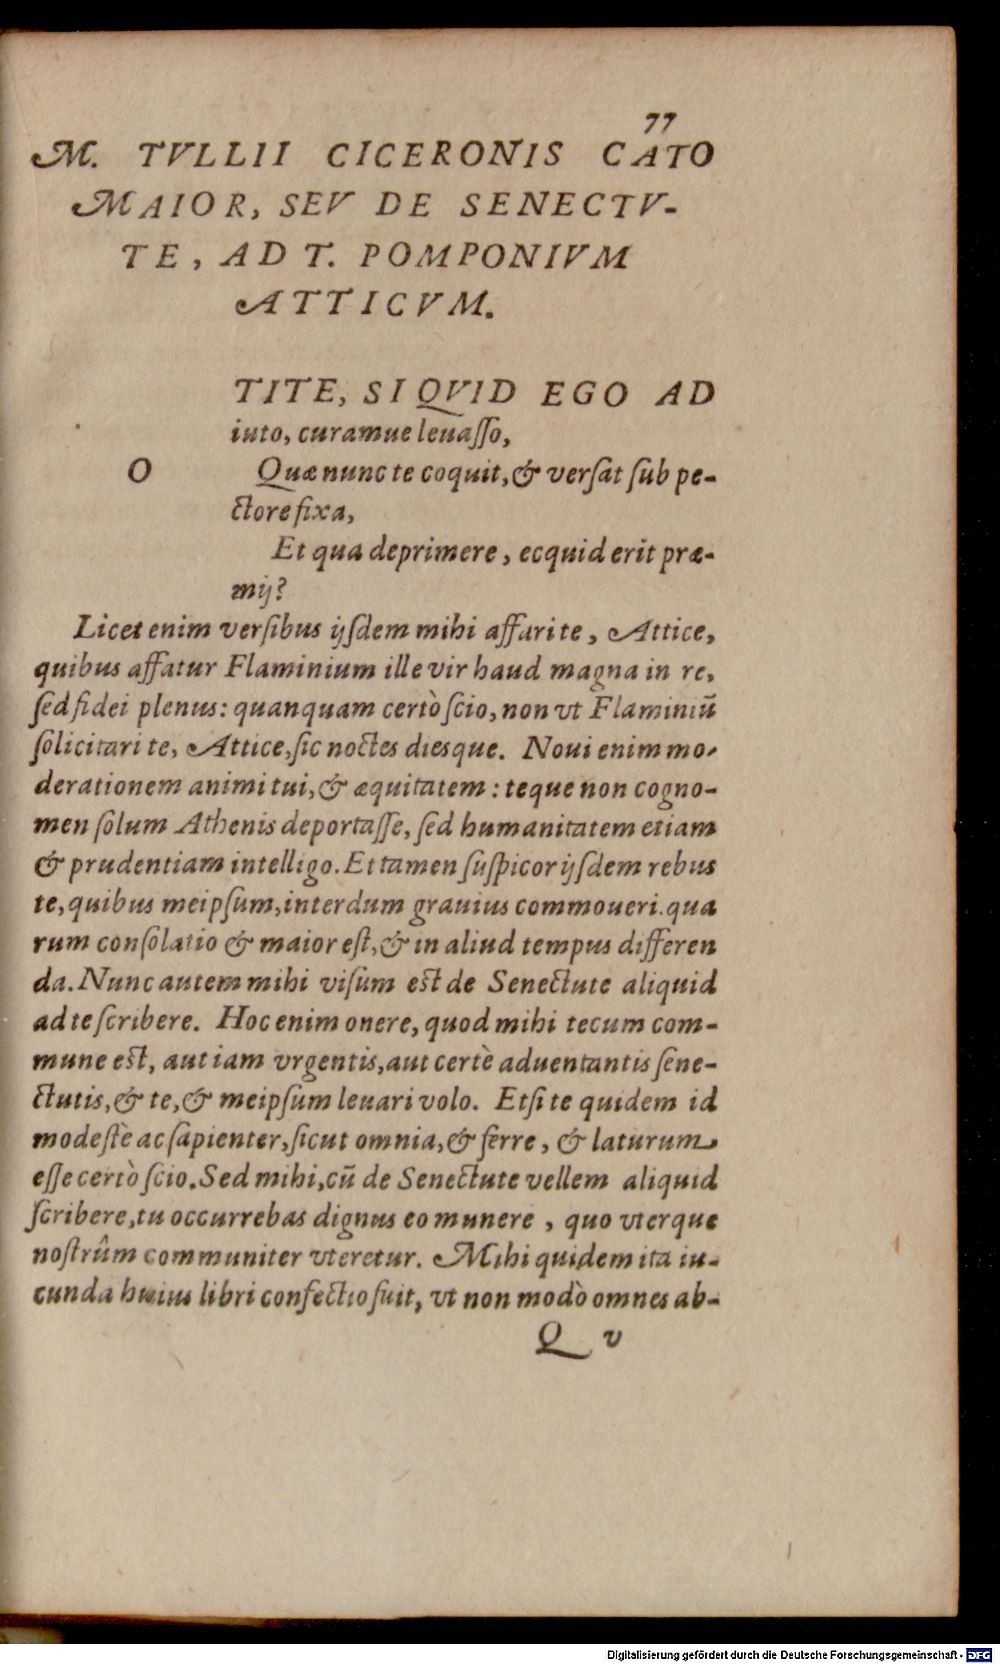 77
M. TVLLII CICERONIS CATO
MAIOR, SEV DE SENECTV-
TE, AD T. POMPONIVM
ATTICVM.
O
TITE, SI QVID EGO AD
iuto, curamue leuaſſo,
Quæ nunc te coquit, & verſat ſub pe-
ctore fixa,
Et qua deprimere, ecquid erit præ-
mij?
Licet enim verſibus ijſdem mihi affari te, Attice,
quibus affatur Flaminium ille vir haud magna in re,
ſed fidei plenus: quanquam certò ſcio, non vt Flaminiū
ſolicitari te, Attice, ſic noctes diesque. Noui enim mo-
derationem animi tui, & æquitatem: teque non cogno-
men ſolum Athenis deportaſſe, ſed humanitatem etiam
& prudentiam intelligo. Et tamen ſuſpicor ijſdem rebus
te, quibus meipſum, interdum grauius commoueri. qua
rum conſolatio & maior eſt, & in aliud tempus differen
da. Nunc autem mihi viſum eſt de Senectute aliquid
ad te ſcribere. Hoc enim onere, quod mihi tecum com-
mune eſt, aut iam vrgentis, aut certè aduentantis ſene-
ctutis, & te, & meipſum leuari volo. Etſi te quidem id
modeſtè ac ſapienter, ſicut omnia, & ferre, & laturum
eſſe certò ſcio. Sed mihi, cū de Senectute vellem aliquid
ſcribere, tu occurrebas dignus eo munere, quo vterque
noſtrûm communiter vteretur. Mihi quidem ita iu-
cunda huius libri confectio fuit, vt non modò omnes ab-
Q v
Digitalisierung gefördert durch die Deutsche Forschungsgemeinschaft - DFG